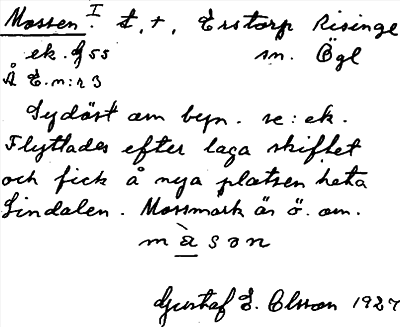 Mossen. I t, +, Erstorp Risinge
ek. G 55 sn. Ögl
Å E.n:r 3
Sydöst om byn. se: ek.
Flyttades efter laga skiftet
och fick å nya platsen heta
Lindalen. Mossmark är ö. om.
m à s ɔ n
Gustaf E. Olsson 1927